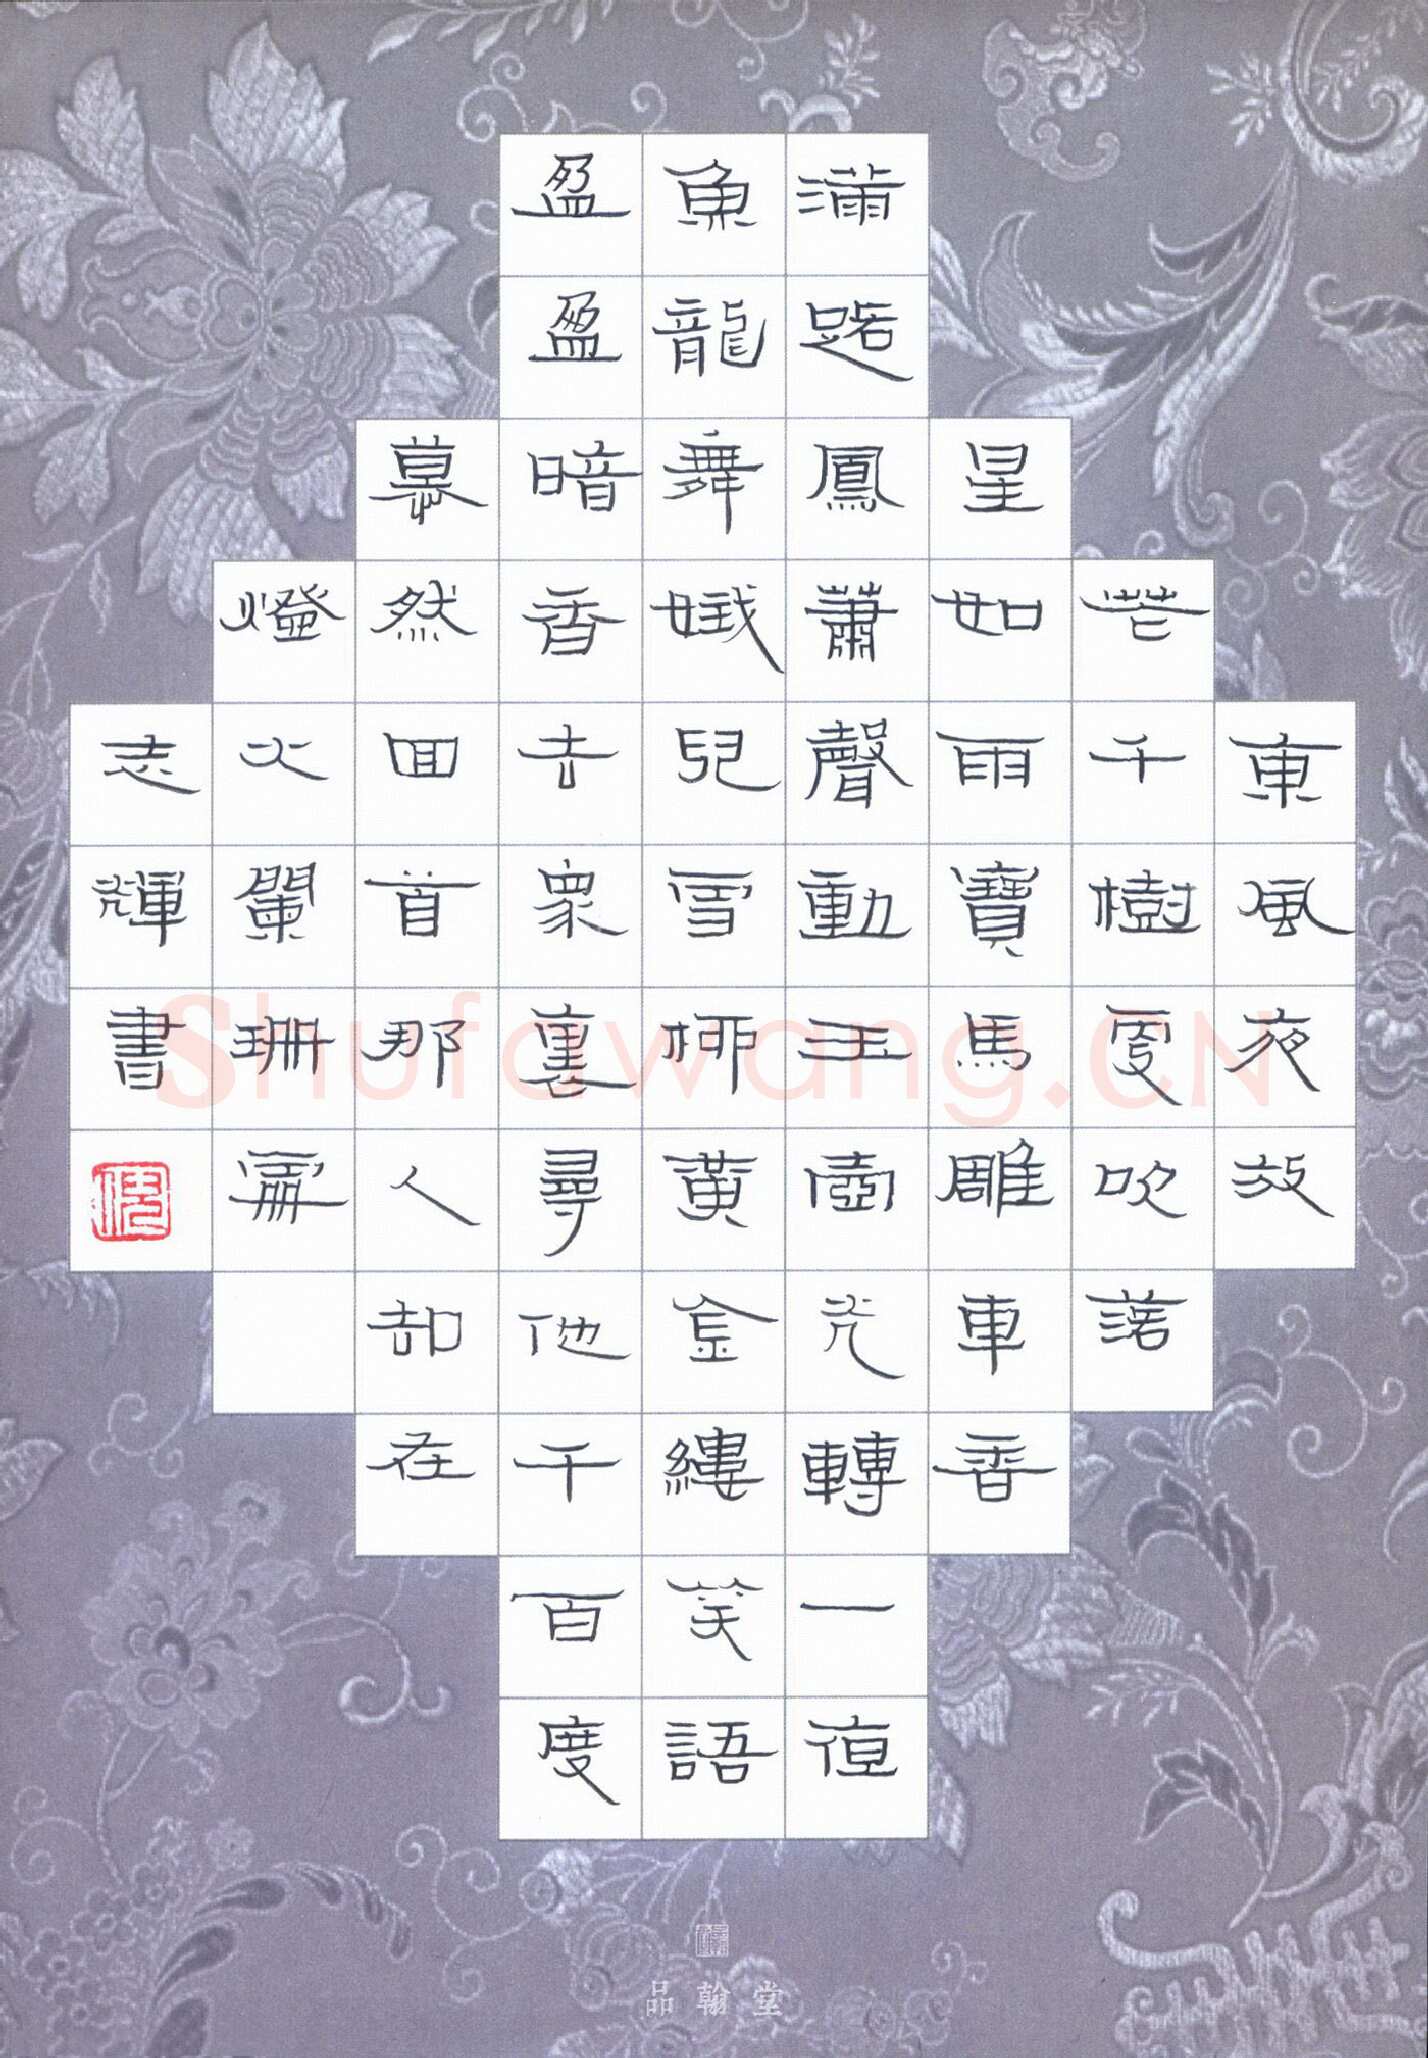 東風夜放
花千樹更吹落
星如雨寶馬雕車香
滿路鳳蕭聲動玉壺光轉一亱
魚龍舞娥兒雪柳黃金縷笑語
盈盈暗香去眾裏尋他千百度
慕然回首那人却在
燈火闌珊處
志輝書
Shufawang.CN
品翰堂